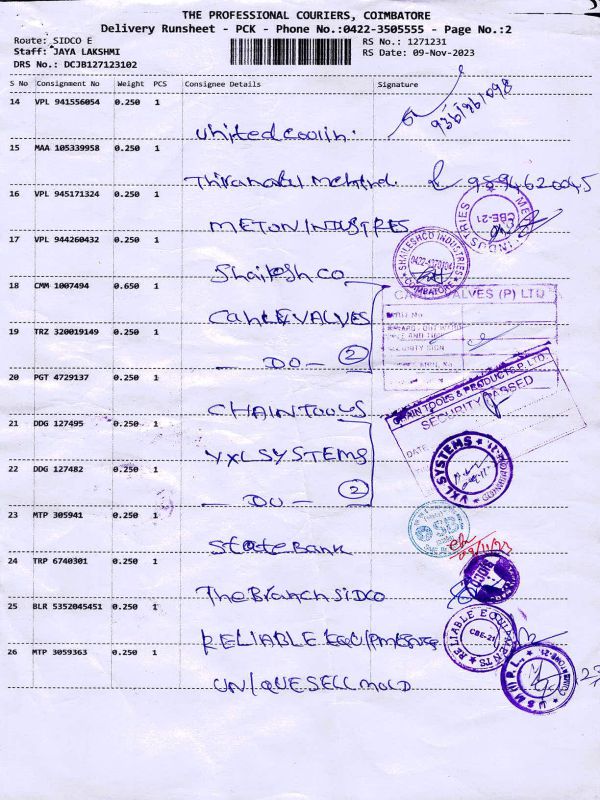 THE PROFESSIONAL COURIERS, COIMBATORE
Delivery Runsheet - PCK - Phone No.:0422-3505555 - Page No.:2
Route: SIDCO E
RS No.: 1271231
Staff: JAYA LAKSHMI
RS Date: 09-Nov-2023
DRS No.: DCJB127123102
S No Consignment No Weight PCS Consignee Details Signature
14 VPL 941556054 0.250 1
United coolin.
15 MAA 105339958 0.250 1
9894620045
16 VPL 945171324 0.250 1
METON INDUSTRES
CBE-21
17 VPL 944260432 0.250 1
Shailesh CO
SHAILESHCO INDUSTRIES
COIMBATORE
18 CMM 1007494 0.650 1
VALVES (P) LTD
VALVES
19 TRZ 320019149 0.250 1
— DO — 2
20 PGT 4729137 0.250 1
CHAIN TOOLS & PRODUCTS P. LTD.
SECURITY PASSED
DATE
CHAIN TOOLS
21 DDG 127495 0.250 1
VXL SYSTEMS
VXL SYSTEMS
22 DDG 127482 0.250 1
— DO — 2
23 MTP 305941 0.250 1
State Bank
09/11/23
24 TRP 6740301 0.250 1
The Branch SIDCO
25 BLR 5352045451 0.250 1
RELIABLE
RELIABLE EQUIPMENTS
CBE-21
26 MTP 3059363 0.250 1
UNIQUE SELL MOLD